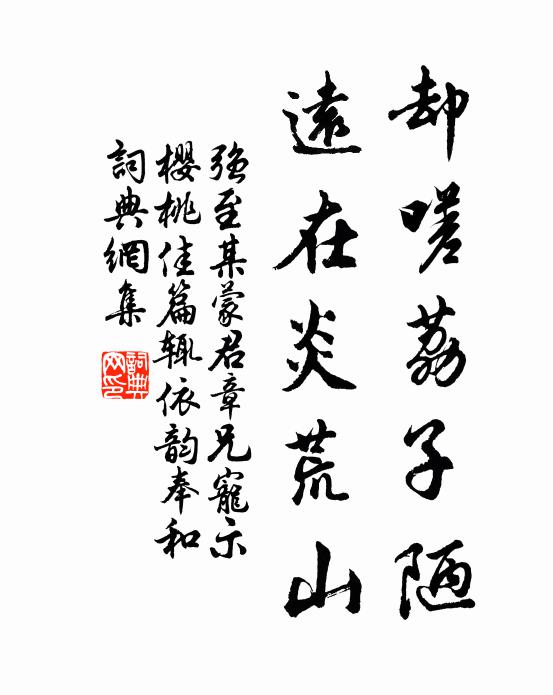 却嗟荔子陋
遠在炎荒山
強至某蒙君章兄寵示
櫻桃佳篇輒依韵奉和
詞典網集
詞典
网印